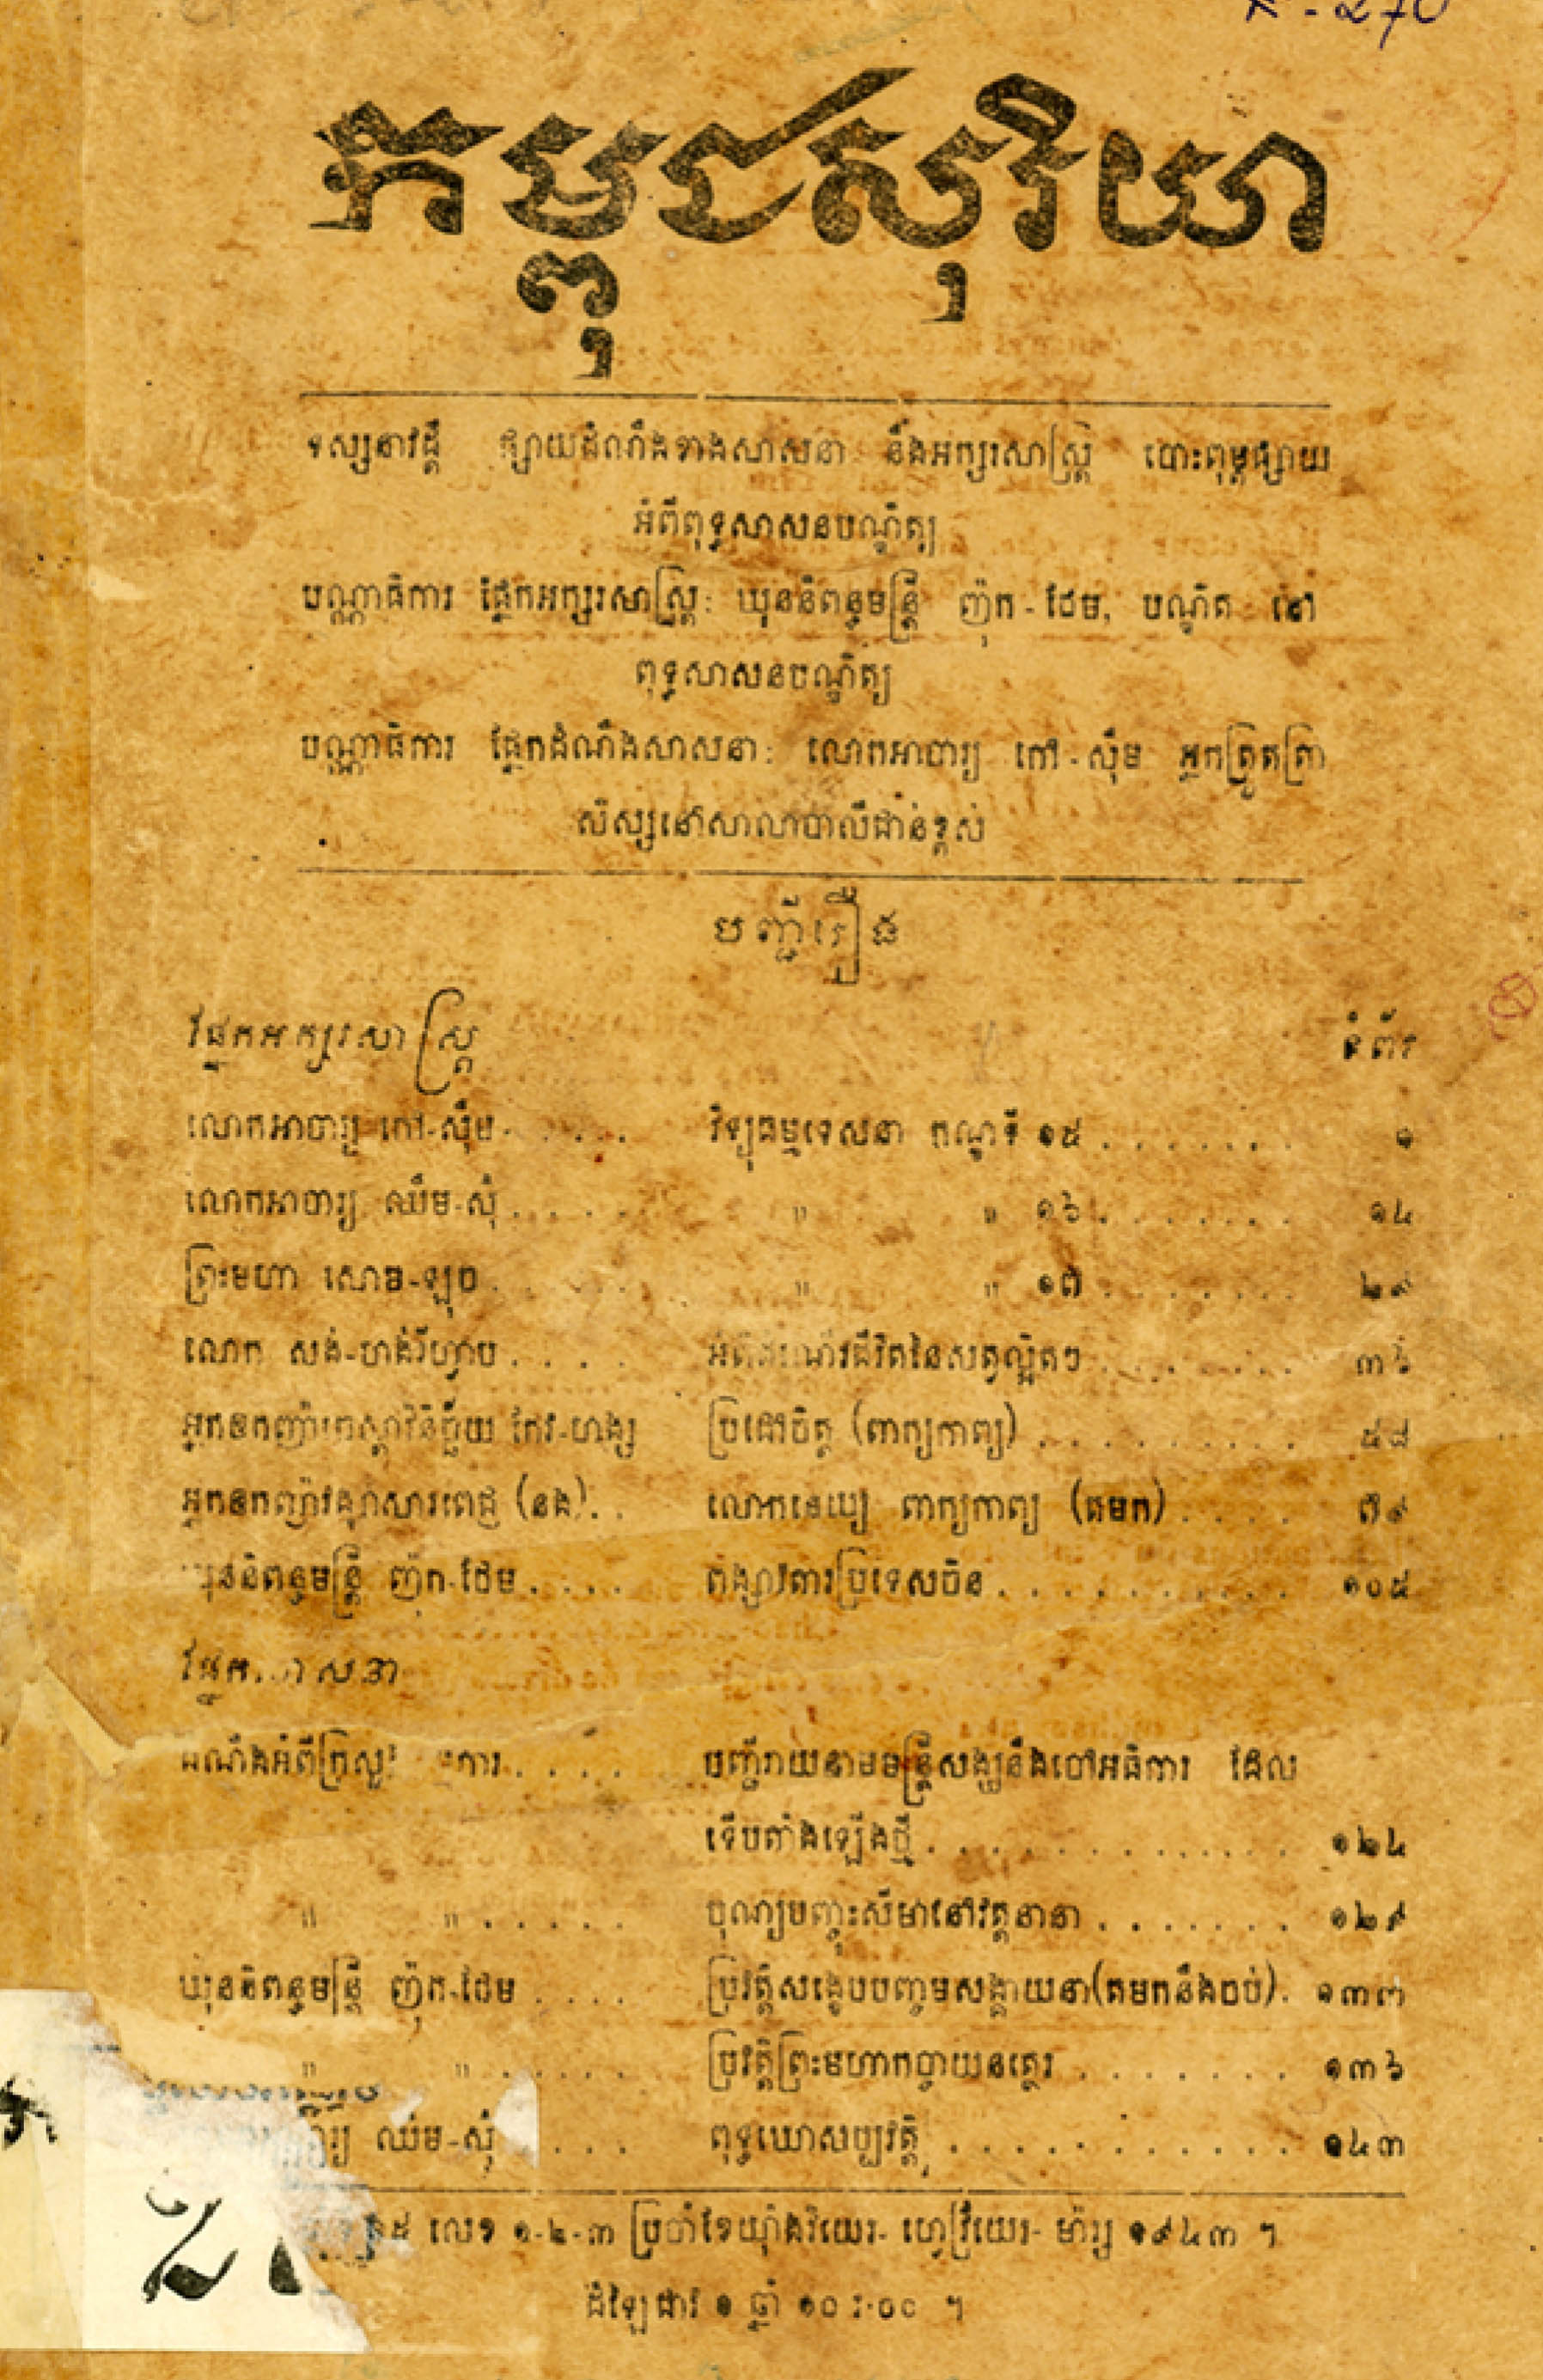 កម្ពុជសុរិយា
ទស្សនាវដ្ដី ផ្សាយដំណឹងខាងសាសនា និងអក្សរសាស្ត្រ បោះពុម្ពផ្សាយ
អំពីពុទ្ធសាសនបណ្ឌិត្យ
បណ្ណាធិការ ផ្នែកអក្សរសាស្ត្រ: ឃុននិពន្ធមន្ត្រី ញ៉ុក-ថែម, បណ្ឌិត នៅ
ពុទ្ធសាសនបណ្ឌិត្យ
បណ្ណាធិការ ផ្នែកដំណឹងសាសនា: លោកអាចារ្យ កៅ-ស៊ឹម អ្នកត្រួតត្រា
សិស្សនៅសាលាបាលីជាន់ខ្ពស់
បញ្ជីរឿង
ផ្នែកអក្សរសាស្ត្រ ទំព័រ
លោកអាចារ្យ កៅ-ស៊ឹម . . . . . វិទ្យុធម្មទេសនា កណ្ឌទី ១៥ . . . . . . . ១
លោកអាចារ្យ ឈឹម-ស៊ុំ . . . . " " ១៦ . . . . . . . ១៤
ព្រះមហា សោម-ឡុច . . . . . " " ១៧ . . . . . . . ២៩
លោក សង់-ហង់រីហ្វាប . . . . ៣៦
អ្នកឧកញ៉ា កែវ-ហង្ស ប្រដៅចិត្ត (ពាក្យកាព្យ) . . . . . . . . . ៥៨
អ្នកឧកញ៉ាវង្សាសារពេជ្ញ (នង) . . លោកនេយ្យ ពាក្យកាព្យ (តមក) . . . . ៧៩
ឃុននិពន្ធមន្ត្រី ញ៉ុក-ថែម . . . . ពង្សាវតារប្រទេសចិន . . . . . . . . . . ១០៥
ផ្នែក
ដំណឹងអំពីក្រសួង ការ . . . . បញ្ជីរាយនាមមន្ត្រីសង្ឃនឹងចៅអធិការ ដែល
ទើបតាំងឡើងថ្មី . . . . . . . . . . . . ១២៤
" " . . . . . បុណ្យបញ្ចុះសីមានៅវត្តនានា . . . . . . . ១២៩
ឃុននិពន្ធមន្ត្រី ញ៉ុក-ថែម . . . . ប្រវត្តិសង្ខេបបញ្ចមសង្គាយនា(តមកនឹងចប់) . ១៣៣
" " . . . . . ប្រវត្តិព្រះមហាកច្ចាយនត្ថេរ . . . . . . . ១៣៦
ឈឹម-ស៊ុំ . . . ពុទ្ធឃោសប្បវត្តិ . . . . . . . . . . . . ១៤៣
៥ លេខ ១-២-៣ ប្រចាំខែយ៉ាំងវិយេរ- ហ្វេវ្រីយេរ- ម៉ារ្ស ១៩៤៣ ។
ដំឡៃជាវ ១ ឆ្នាំ ១០ រ.០០ ។